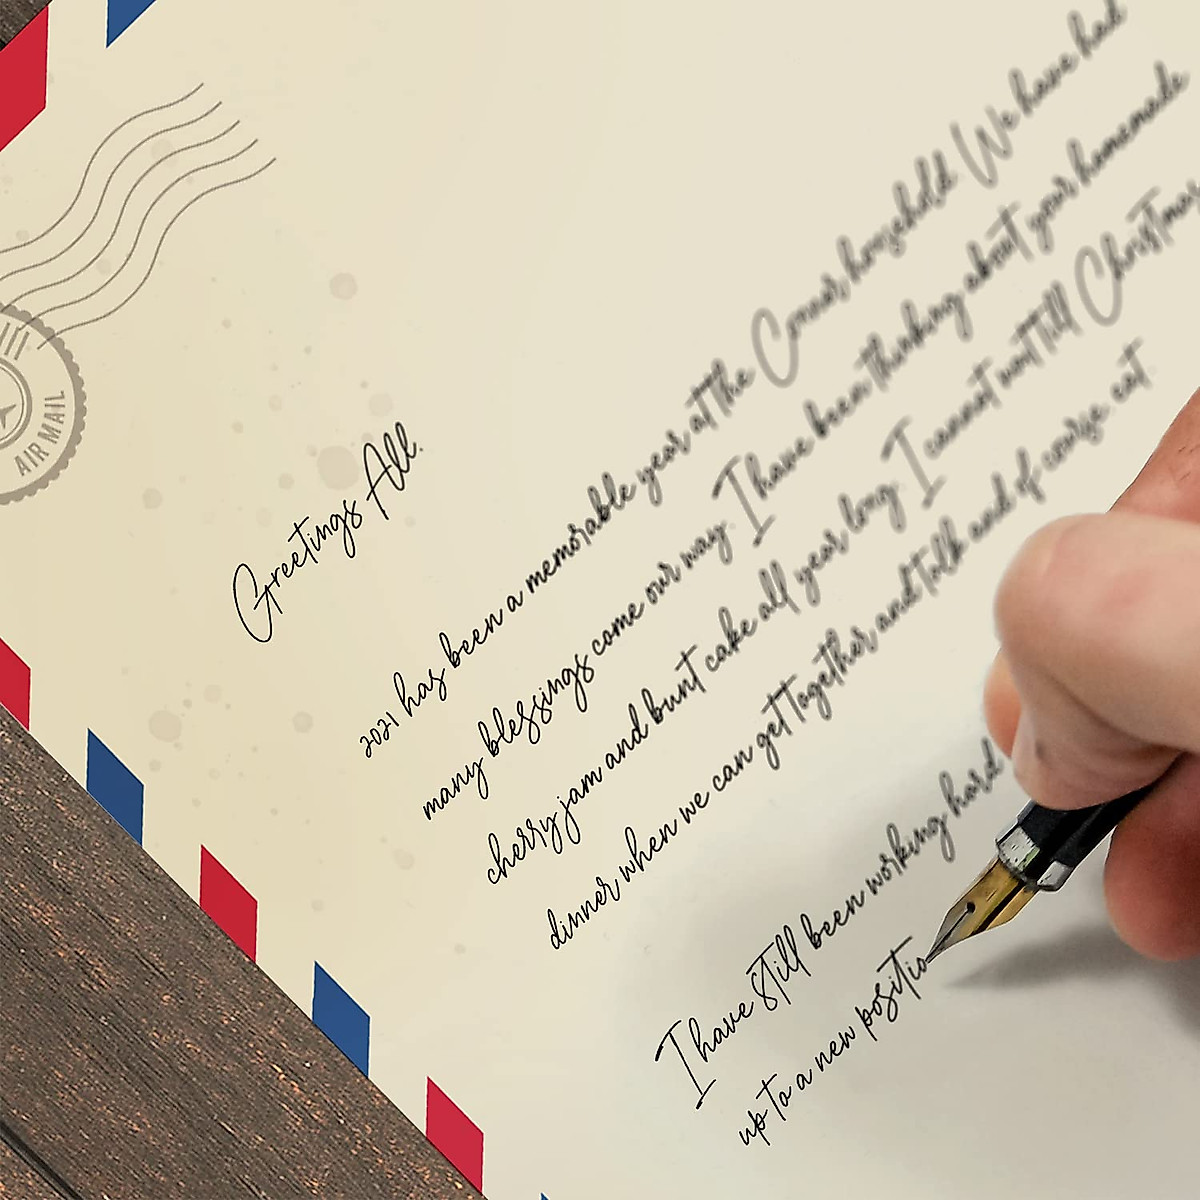 AIR MAIL
Greetings All.
2021 has been a memorable year at the Connors household. We have had
many blessings come our way. I have been thinking about your homemade
cherry jam and bunt cake all year long. I cannot wait till Christmas
dinner when we can get together and talk and of course eat
I have still been working hard
up to a new positio